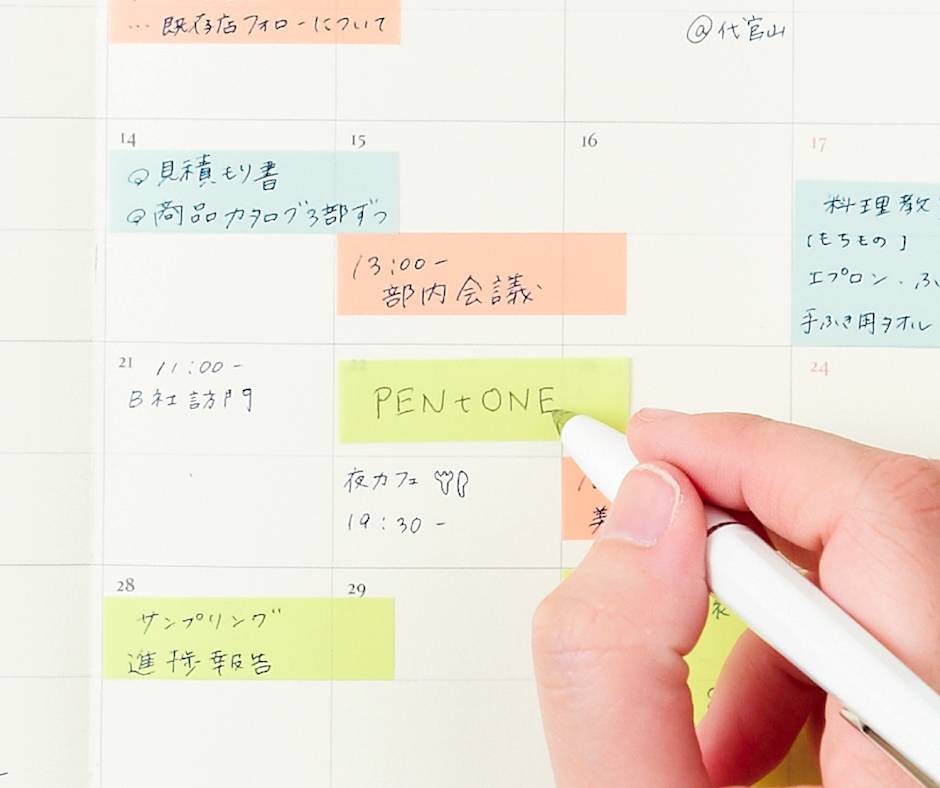 … 既存店フォローについて
@代官山
14
15
16
17
@見積もり書
@商品カタログ3部ずつ
料理教
[もちもの]
エプロン・ふ
手ふき用タオル
13:00-
部内会議
21
11:00-
B社訪門
22
24
PEN+ONE
夜カフェ
19:30-
美
28
29
サンプリング
進捗報告